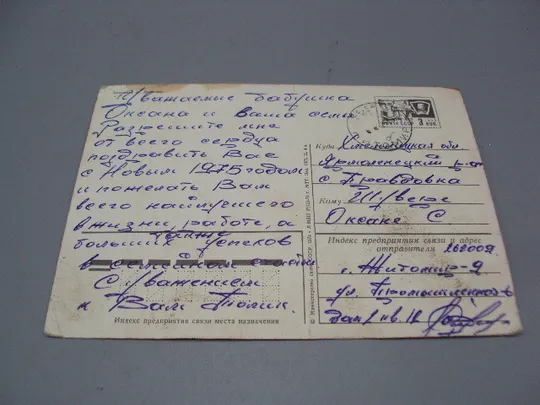 Уважаемые бабушка
Оксана и Ваша семья
Разрешите мне
от всего сердца
поздравить Вас
с Новым 1975 годом
и пожелать Вам
всего наилучшего
в жизни, работе, а
также
больших успехов
в
С уважением
к Вам
Индекс предприятия связи места назначения
ПОЧТА СССР
3
КОП
Куда Хмельницкая обл
Ярмолинецкий р-н
с. Правдовка
Кому
Оксане С
Индекс предприятия связи и адрес
отправителя 262009
г. Житомир-9
ул. Промышленная
дом кв. 12